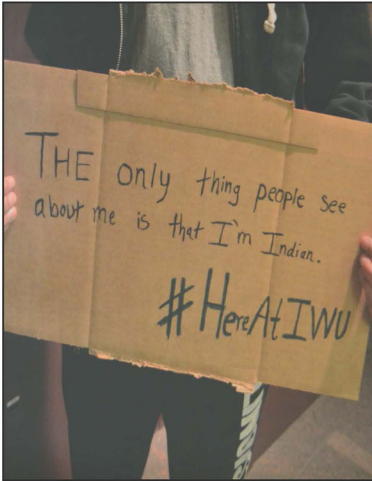 THE only thing people see
about me is that I'm Indian.
#HereAtIWU